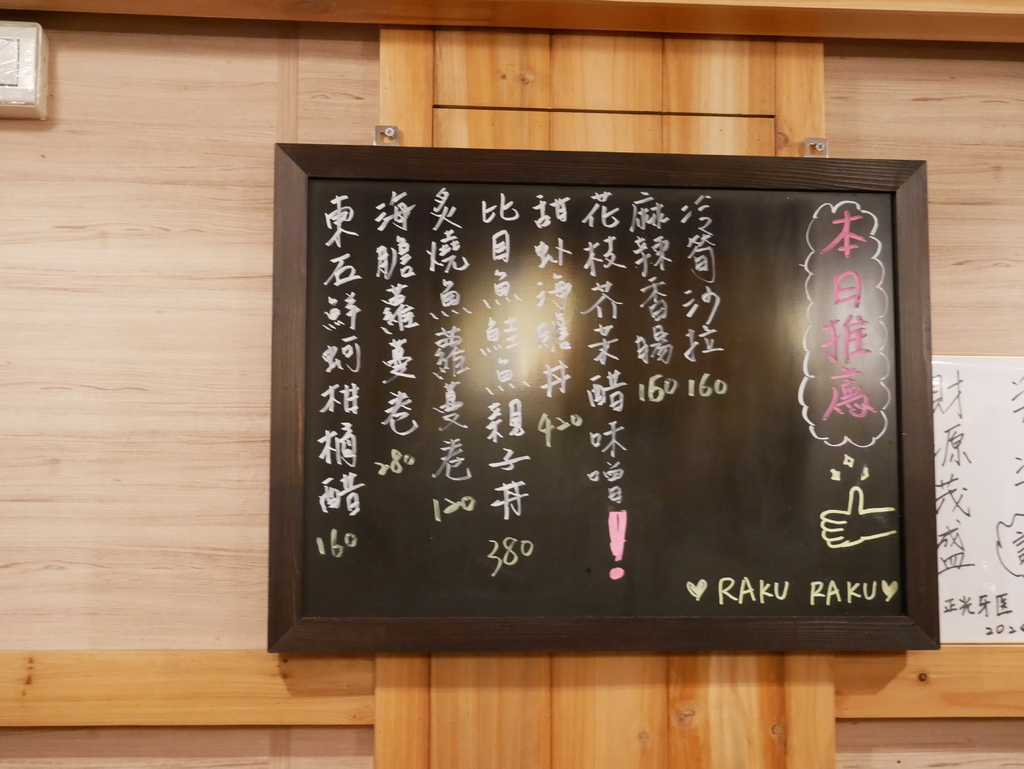 本日推薦
冷筍沙拉 160
麻辣香腸 160
花枝芥茉醋味噌!
甜虾海鱔丼 420
比目魚鮭魚親子丼 380
炙燒魚蘿蔓卷 120
海膽蘿蔓卷 280
東石鮮蚵柑橘醋 160
RAKU RAKU
財源茂盛
正光牙医
202